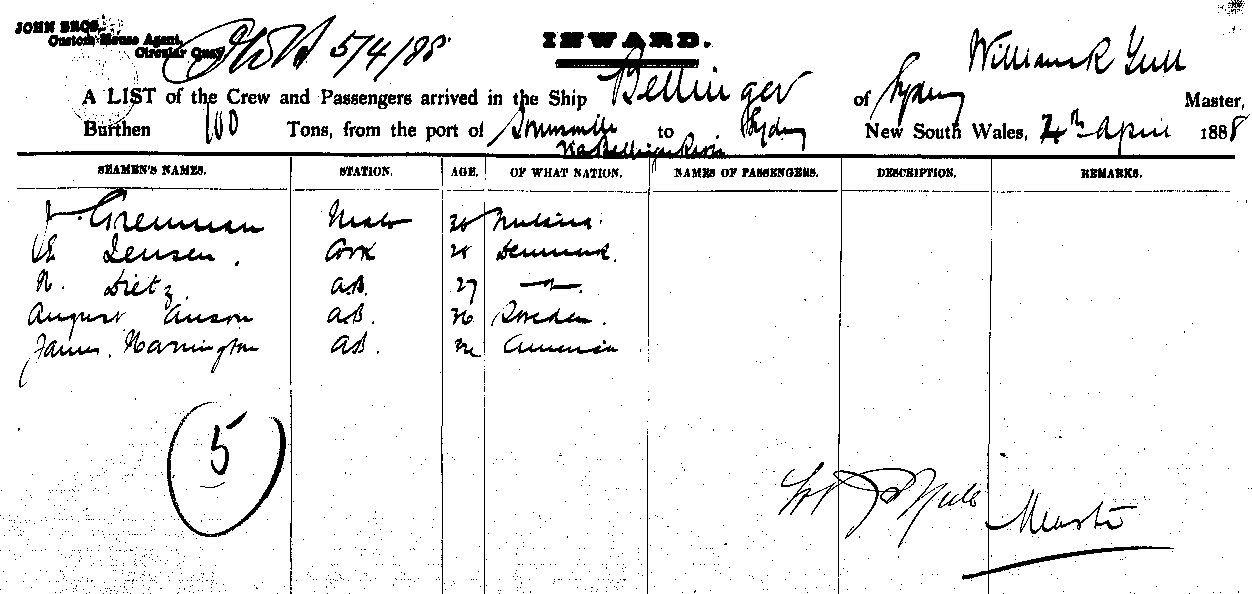 JOHN BROS.
Custom House Agent,
Circular Quay
5/4/88
INWARD.
William R Yull
A LIST of the Crew and Passengers arrived in the Ship Bellinger of Sydney Master,
Burthen 100 Tons, from the port of Townsville to Sydney New South Wales, 4th April 1888
via Bellinger River
SEAMEN'S NAMES. STATION. AGE. OF WHAT NATION. NAMES OF PASSENGERS. DESCRIPTION. REMARKS.
J. Mate
Jensen. Cook 28 Denmark.
N. Dietz. A.B. 27 -"-.
August A.B. 36 Sweden.
James Harrington A.B. America
5
Master